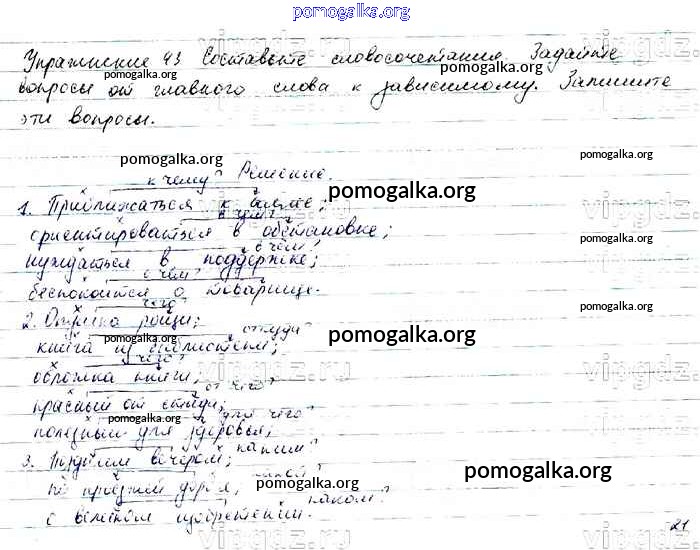 pomogalka.org
Упражнение 43 Составьте словосочетания. Задайте
pomogalka.org
вопросы от главного слова к зависимому. Запишите
эти вопросы.
pomogalka.org
к чему? Решение.
pomogalka.org
1. Приближаться к школе;
в чём?
ориентироваться в обстановке;
в чём?
нуждаться в поддержке;
о чём?
беспокоится о товарище.
чего?
2. Опушка рощи;
откуда?
pomogalka.org
книга из библиотеки;
pomogalka.org
чего?
обложка книги;
от чего?
красный от стыда;
для чего?
pomogalka.org
полезный для здоровья;
каким?
3. вечером;
pomogalka.org
pomogalka.org
по дороге,
каком?
о великом изобретении.
pomogalka.org
21
vipgdz.ru